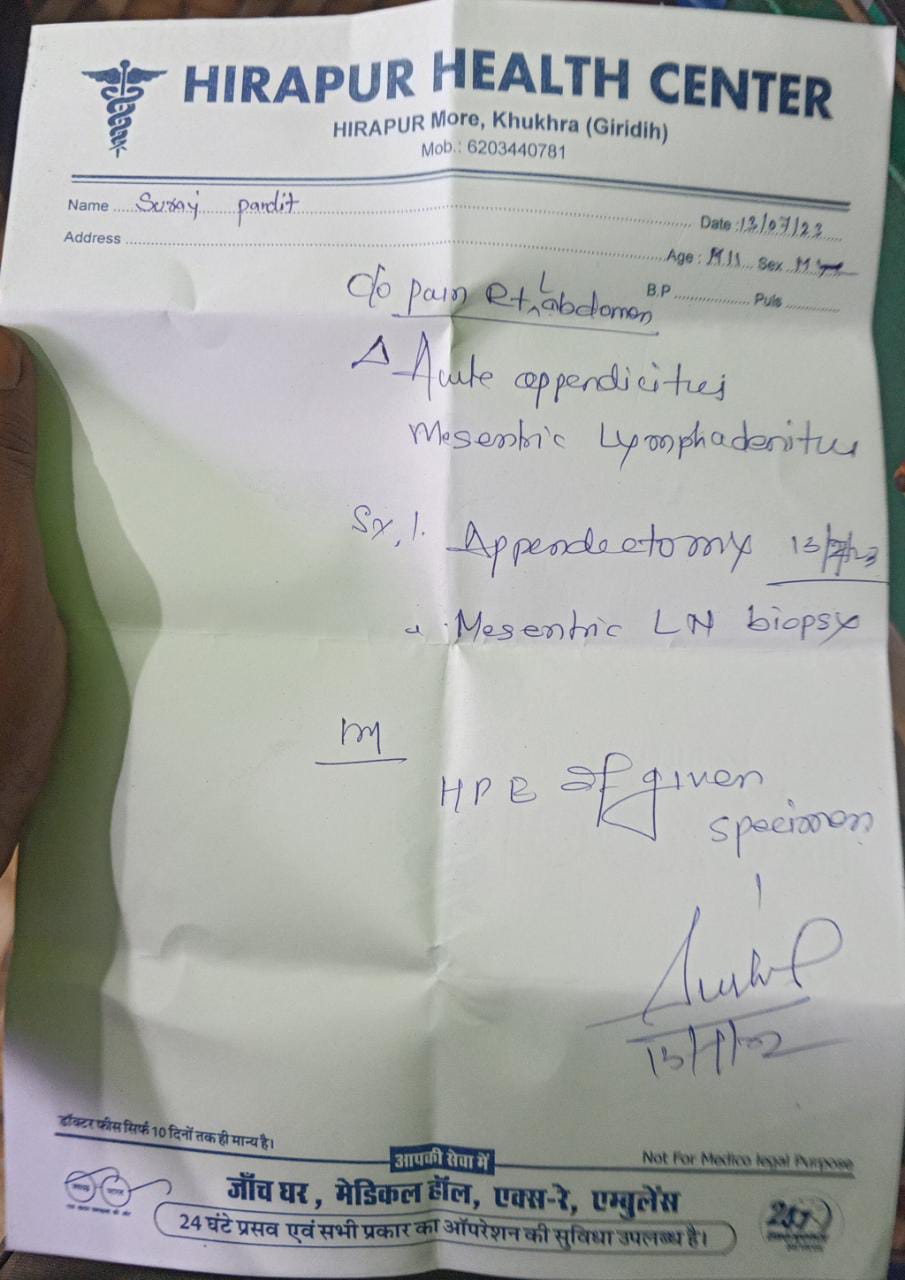 HIRAPUR HEALTH CENTER
HIRAPUR More, Khukhra (Giridih)
Mob.: 6203440781
Name Suraj pandit
Date : 13/07/23
Address
Age : Sex M
B.P Puls
c/o pain Rt abdomen
Δ Acute appendicitis
Mesentric Lymphadenitis
Sx, 1. Appendectomy 13/7/23
Mesentric LN biopsy
HPE of given
specimen
डॉक्टर फीस सिर्फ 10 दिनों तक ही मान्य है।
आपकी सेवा में
Not For Medico legal Purpose
जाँच घर, मेडिकल हॉल, एक्स-रे, एम्बुलेंस
24 घंटे प्रसव एवं सभी प्रकार का ऑपरेशन की सुविधा उपलब्ध है।
24x7